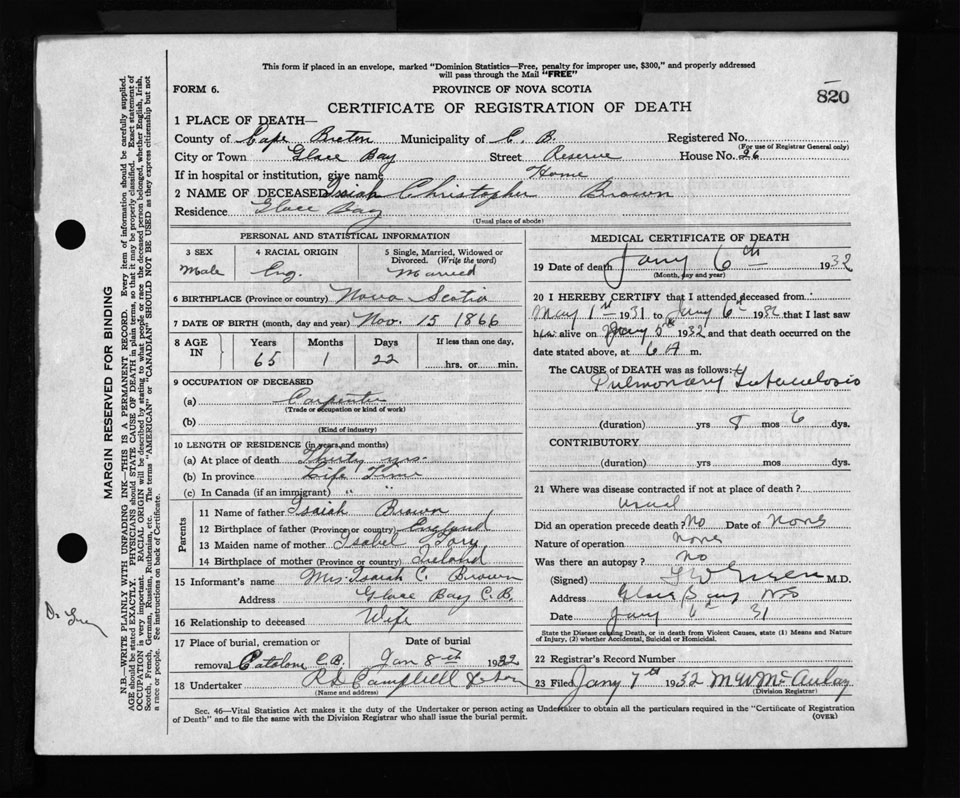 This form if placed in an envelope, marked "Dominion Statistics—Free, penalty for improper use, $300," and properly addressed
will pass through the Mail "FREE"
FORM 6. PROVINCE OF NOVA SCOTIA 820
CERTIFICATE OF REGISTRATION OF DEATH
1 PLACE OF DEATH—
County of Cape Breton Municipality of C. B. Registered No.
(For use of Registrar General only)
City or Town Glace Bay Street Reserve House No. 26
If in hospital or institution, give name Home
2 NAME OF DECEASED Isiah Christopher Brown
Residence Glace Bay
(Usual place of abode)
PERSONAL AND STATISTICAL INFORMATION
3 SEX 4 RACIAL ORIGIN 5 Single, Married, Widowed or
Divorced. (Write the word)
Male Eng. Married
6 BIRTHPLACE (Province or country) Nova Scotia
7 DATE OF BIRTH (month, day and year) Nov. 15 1866
8 AGE Years Months Days If less than one day,
IN 65 1 22 hrs. or min.
9 OCCUPATION OF DECEASED
(a) Carpenter
(Trade or occupation or kind of work)
(b)
(Kind of industry)
10 LENGTH OF RESIDENCE (in years and months)
(a) At place of death Thirty yrs.
(b) In province Life Time
(c) In Canada (if an immigrant) " "
Parents
11 Name of father Isaiah Brown
12 Birthplace of father (Province or country) England
13 Maiden name of mother Isabel
14 Birthplace of mother (Province or country) Ireland
15 Informant's name Mrs. Isaiah C. Brown
Address Glace Bay C.B.
16 Relationship to deceased Wife
17 Place of burial, cremation or Date of burial
removal Catalone C.B. Jan 8th 1932
18 Undertaker R D Campbell & Son
(Name and address)
MEDICAL CERTIFICATE OF DEATH
19 Date of death Jany 6th 1932
(Month, day and year)
20 I HEREBY CERTIFY that I attended deceased from
May 1st 1931 to Jany 6th 1932 that I last saw
him alive on Jany 1932 and that death occurred on the
date stated above, at 6 A m.
The CAUSE of DEATH was as follows:
Pulmonary Tuberculosis
(duration) yrs 8 mos 6 dys.
CONTRIBUTORY
(duration) yrs. mos. dys.
21 Where was disease contracted if not at place of death?
usual
Did an operation precede death? No Date of None
Nature of operation None
Was there an autopsy? No
(Signed) M.D.
Address Glace Bay NS
Date Jany 6th 31
State the Disease causing Death, or in death from Violent Causes, state (1) Means and Nature
of Injury, (2) whether Accidental, Suicidal or Homicidal.
22 Registrar's Record Number
23 Filed Jany 7th 1932 M W McAulay
(Division Registrar)
Sec. 46—Vital Statistics Act makes it the duty of the Undertaker or person acting as Undertaker to obtain all the particulars required in the "Certificate of Registration
of Death" and to file the same with the Division Registrar who shall issue the burial permit. (OVER)
MARGIN RESERVED FOR BINDING
N.B.—WRITE PLAINLY WITH UNFADING INK—THIS IS A PERMANENT RECORD. Every item of information should be carefully supplied.
AGE should be stated EXACTLY. PHYSICIANS should STATE CAUSE OF DEATH in plain terms, so that it may be properly classified. Exact statement of
OCCUPATION is very important. RACIAL ORIGIN will be described by stating to what people or race the deceased person belonged, whether English, Irish,
Scotch, French, German, Russian, Ruthenian, etc. The terms "AMERICAN" or "CANADIAN" SHOULD NOT BE USED as they express citizenship but not
a race or people. See instructions on back of Certificate.